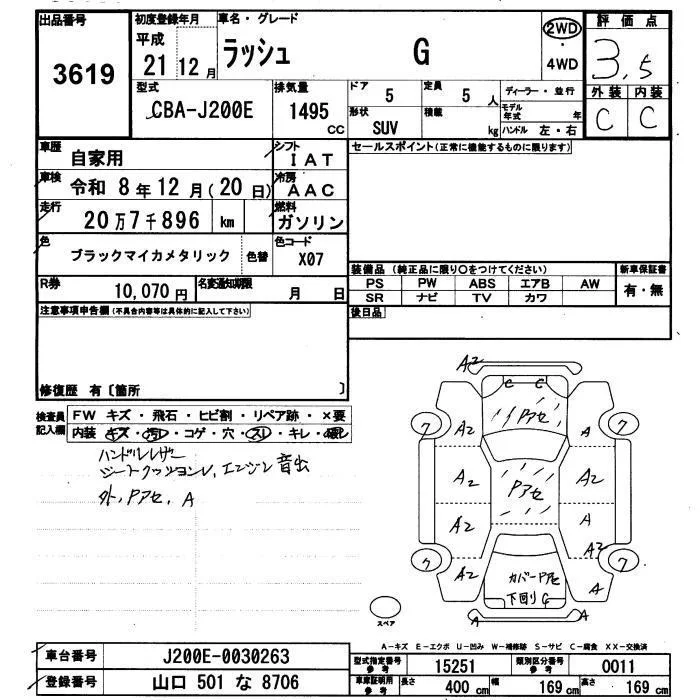 出品番号
3619
初度登録年月
平成
21 12 月
車名・グレード
ラッシュ G
2WD
・
4WD
評価点
3,5
外装 内装
C C
型式
CBA-J200E
排気量
1495 cc
ドア
5
定員
5 人
形状
SUV
積載
kg
ディーラー・並行
モデル年式 年
ハンドル 左・右
車歴
自家用
シフト
I A T
車検
令和 8 年 12 月 ( 20 日)
冷房
A A C
走行
20 万 7 千 896 km
燃料
ガソリン
色
ブラックマイカメタリック
色替
色コード
X07
R券
10,070 円
名変通知期限
月 日
セールスポイント(正常に機能するものに限ります)
装備品 (純正品に限り○をつけてください)
PS PW ABS エアB AW
SR ナビ TV カワ
新車保証書
有・無
後日品
注意事項申告欄(不具合内容等は具体的に記入して下さい)
修復歴 有〔箇所 〕
検査員記入欄
FW キズ・飛石・ヒビ割・リペア跡・×要
内装 キズ・汚レ・コゲ・穴・スレ・キレ・破レ
ハンドルレザー
シートクッションV,エンジン音出
外,Pアセ,A
A2
C C
Pアセ
ワ A2 A ワ
A2 Pアセ A2
A2 A
A2
ワ A2 カバーPアセ A ワ
下回りC
A A
スペア
A-キズ E-エクボ U-凹み W-補修跡 S-サビ C-腐食 XX-交換済
車台番号
J200E-0030263
登録番号
山口 501 な 8706
型式指定番号
参考
15251
類別区分番号
参考
0011
車庫証明用
参考
長さ 400 cm
幅 169 cm
高さ 169 cm